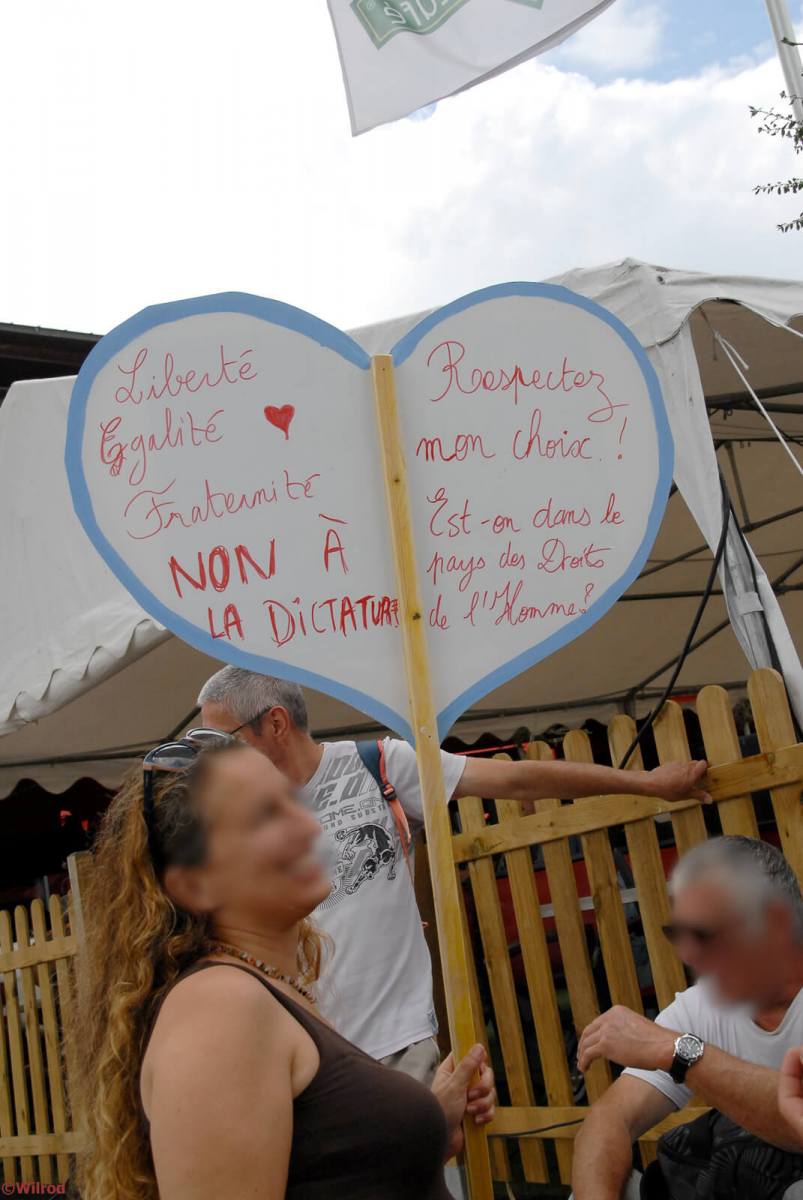 Liberté
Egalité
Fraternité
NON À
LA DICTATURE
Respectez
mon choix !
Est-on dans le
pays des Droits
de l'Homme?
©Wilrod